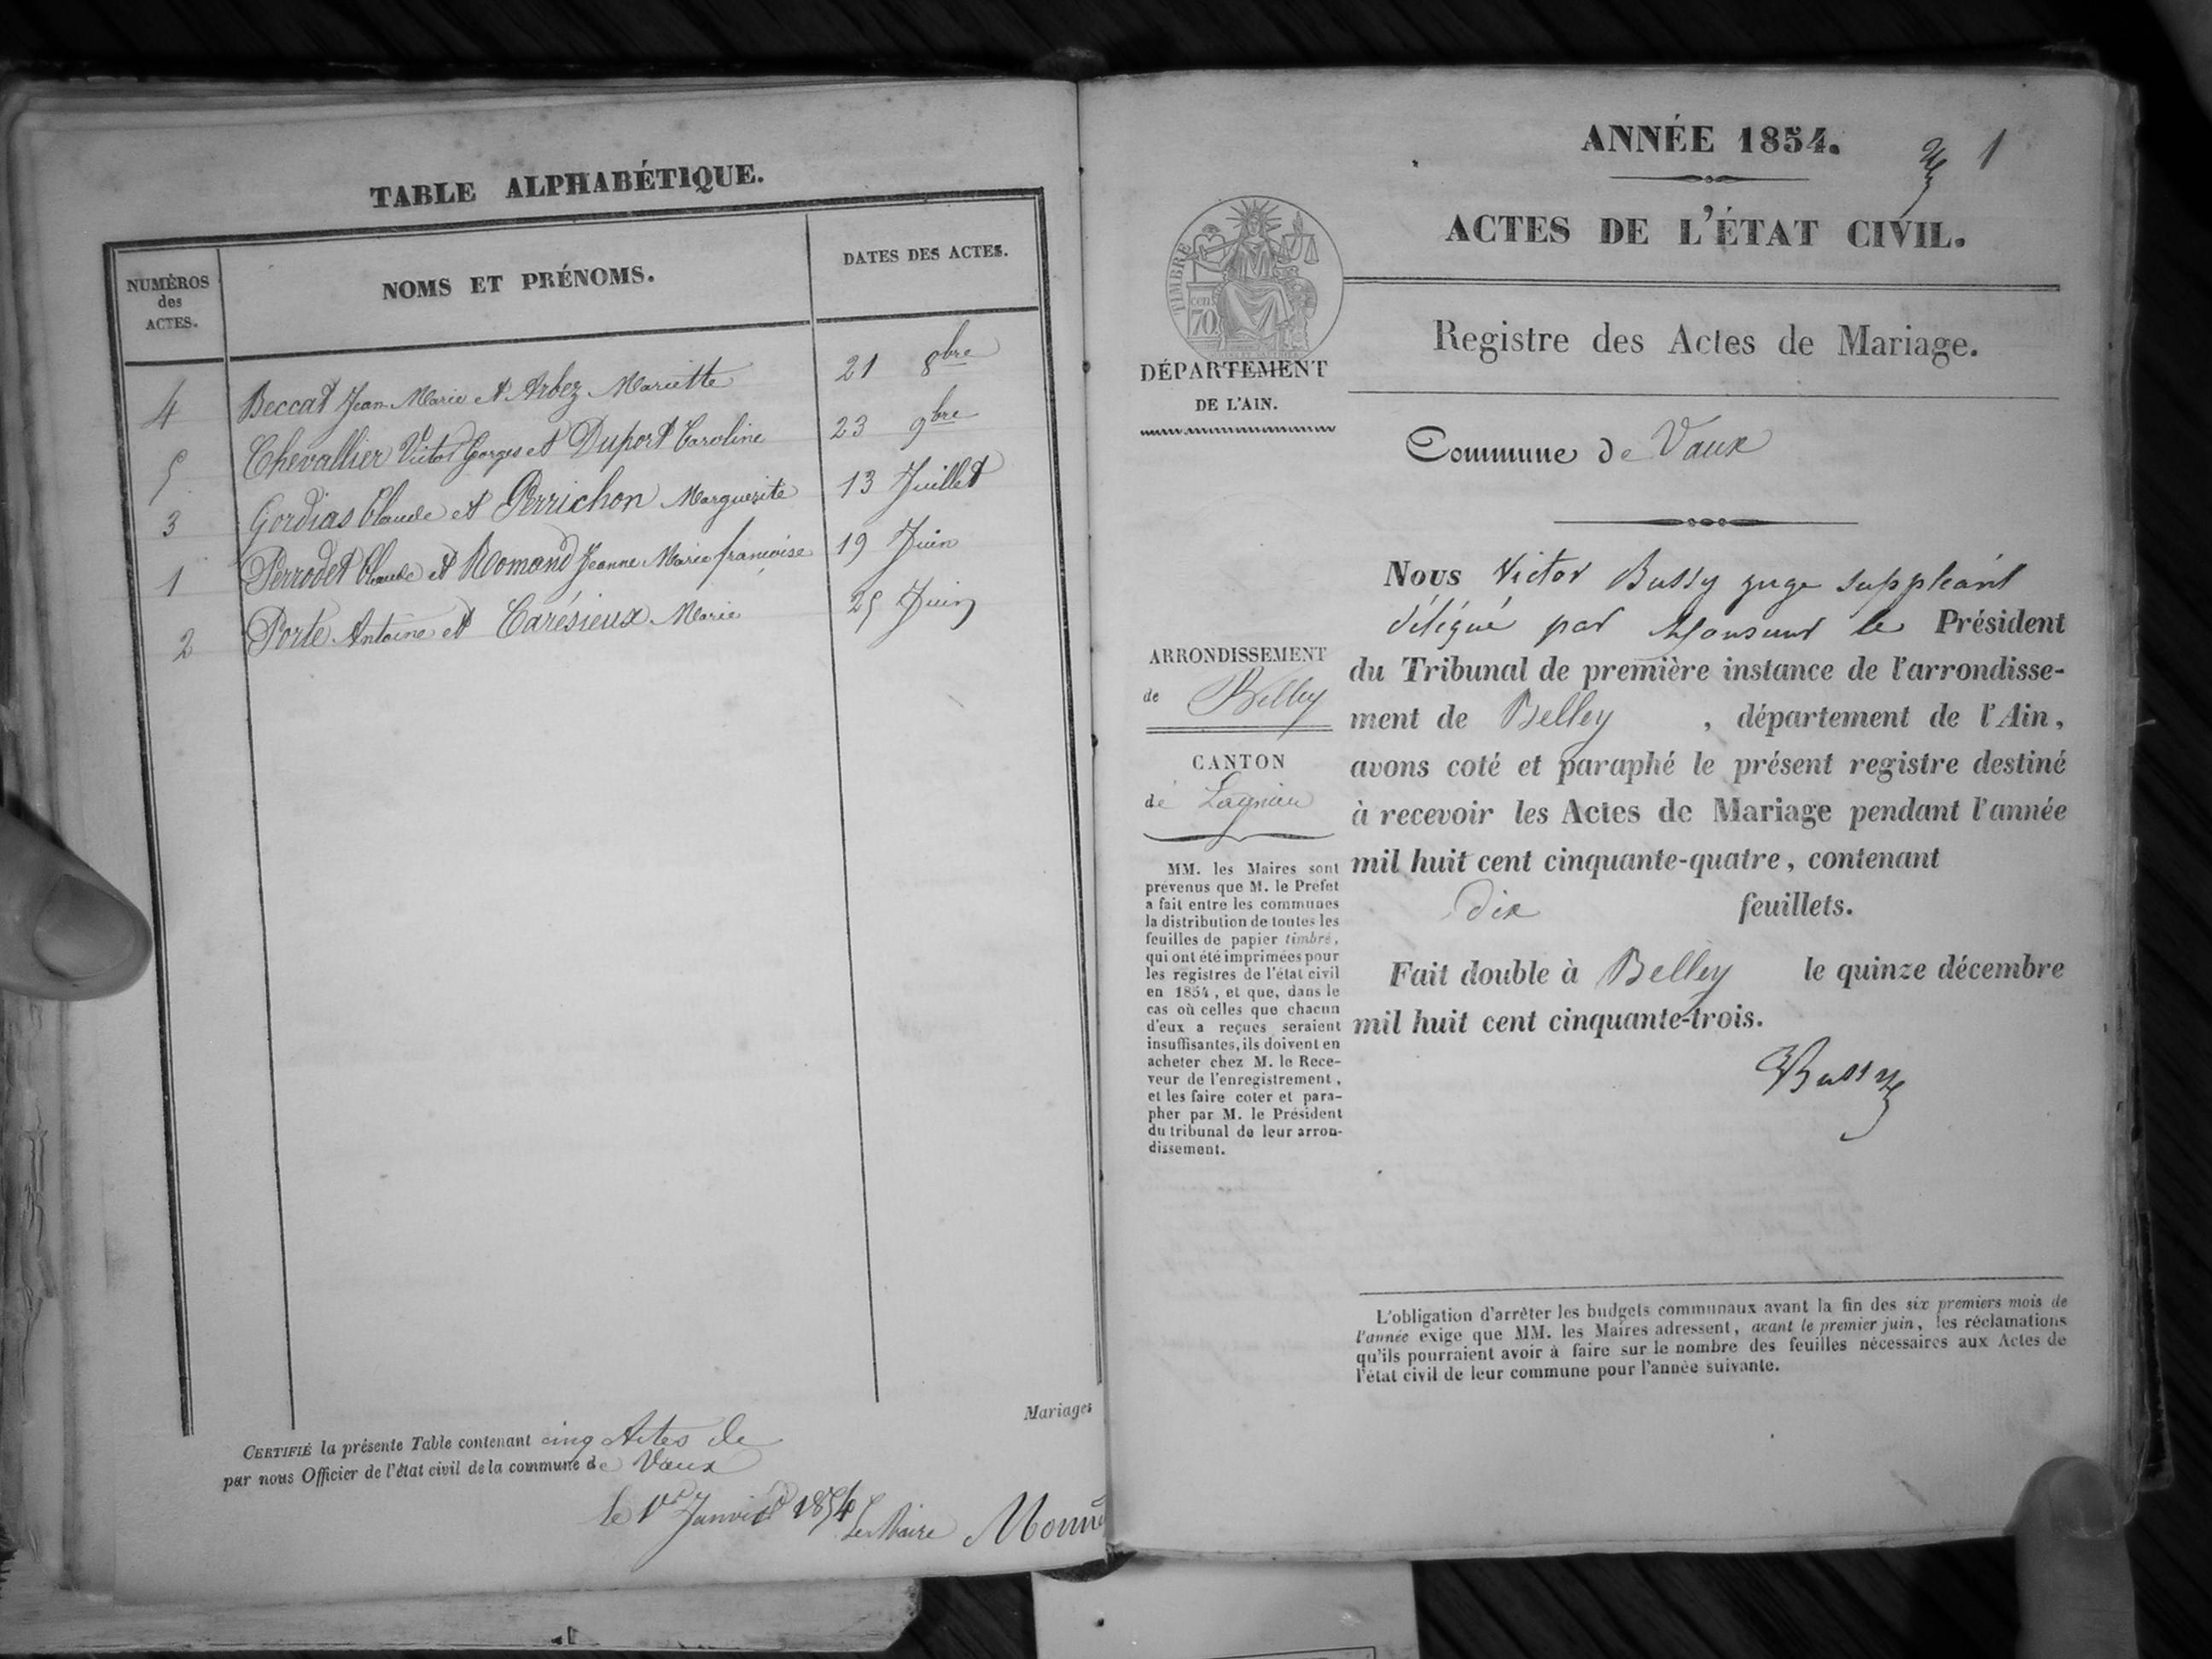 TABLE ALPHABÉTIQUE.
NUMÉROS des ACTES.
NOMS ET PRÉNOMS.
DATES DES ACTES.
4 Beccat Jean Marie et Arbez Mariette 21 8bre
5 Chevallier Victor Georges et Duport Caroline 23 9bre
3 Gordias Claude et Perrichon Marguerite 13 Juillet
1 Perrodet Claude et Romand Jeanne Marie françoise 19 Juin
2 Porte Antoine et Carésieux Marie 25 Juin
Mariages
CERTIFIÉ la présente Table contenant cinq Actes de
par nous Officier de l'état civil de la commune de Vaux
le 1er Janvier 1854
Le Maire
ANNÉE 1854.
1
ACTES DE L'ÉTAT CIVIL.
TIMBRE
cen.
70
Registre des Actes de Mariage.
DÉPARTEMENT
DE L'AIN.
Commune de Vaux
Nous Victor Bussy juge suppléant
délégué par Monsieur le Président
du Tribunal de première instance de l'arrondisse-
ment de Belley , département de l'Ain,
avons coté et paraphé le présent registre destiné
à recevoir les Actes de Mariage pendant l'année
mil huit cent cinquante-quatre, contenant
dix feuillets.
Fait double à Belley le quinze décembre
mil huit cent cinquante-trois.
Bussy
ARRONDISSEMENT
de Belley
CANTON
de Lagnieu
MM. les Maires sont
prévenus que M. le Préfet
a fait entre les communes
la distribution de toutes les
feuilles de papier timbré,
qui ont été imprimées pour
les registres de l'état civil
en 1854, et que, dans le
cas où celles que chacun
d'eux a reçues seraient
insuffisantes, ils doivent en
acheter chez M. le Rece-
veur de l'enregistrement,
et les faire coter et para-
pher par M. le Président
du tribunal de leur arron-
dissement.
L'obligation d'arrêter les budgets communaux avant la fin des six premiers mois de
l'année exige que MM. les Maires adressent, avant le premier juin, les réclamations
qu'ils pourraient avoir à faire sur le nombre des feuilles nécessaires aux Actes de
l'état civil de leur commune pour l'année suivante.